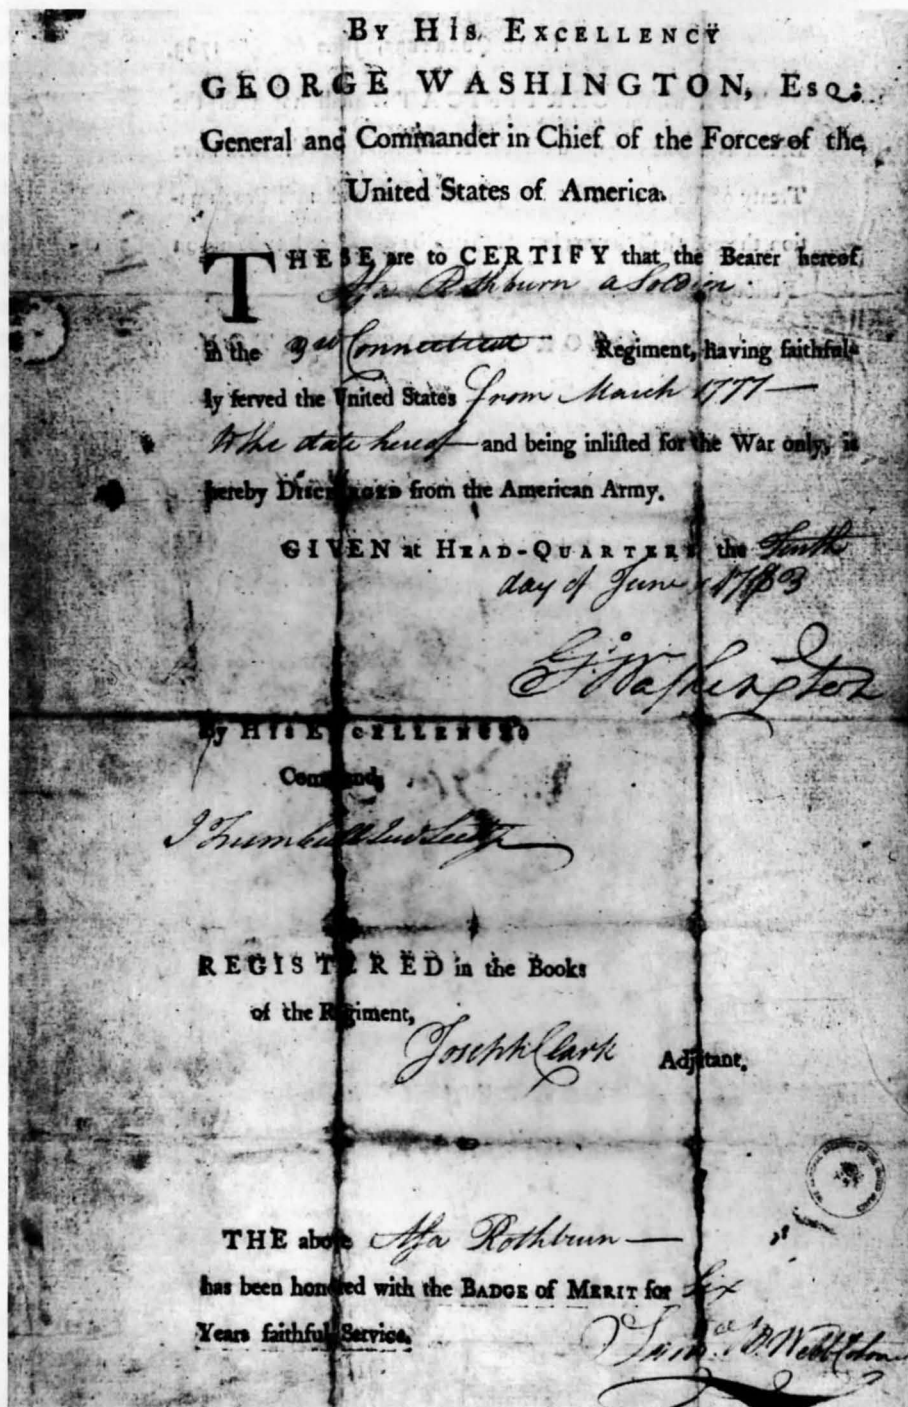 BY HIS EXCELLENCY
GEORGE WASHINGTON, Esq;
General and Commander in Chief of the Forces of the
United States of America.
THESE are to CERTIFY that the Bearer hereof
Asa Rothburn a Soldier
in the 3rd Connecticut Regiment, having faithful-
ly served the United States from March 1777 —
to the date hereof — and being inlisted for the War only, is
hereby DISCHARGED from the American Army.
GIVEN at HEAD-QUARTERS the Tenth
day of June 1783
Go Washington
By HIS EXCELLENCY'S
Command,
J Trumbull Jun Secy
REGISTERED in the Books
of the Regiment,
Joseph Clark Adjutant.
THE above Asa Rothburn —
has been honored with the BADGE of MERIT for Six
Years faithful Service.
Saml B. Webb Colonel